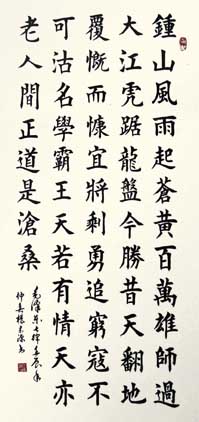 鍾山風雨起蒼黃百萬雄師過
大江虎踞龍盤今勝昔天翻地
覆慨而慷宜將剩勇追窮寇不
可沽名學霸王天若有情天亦
老人間正道是滄桑
毛澤東七律壬辰年